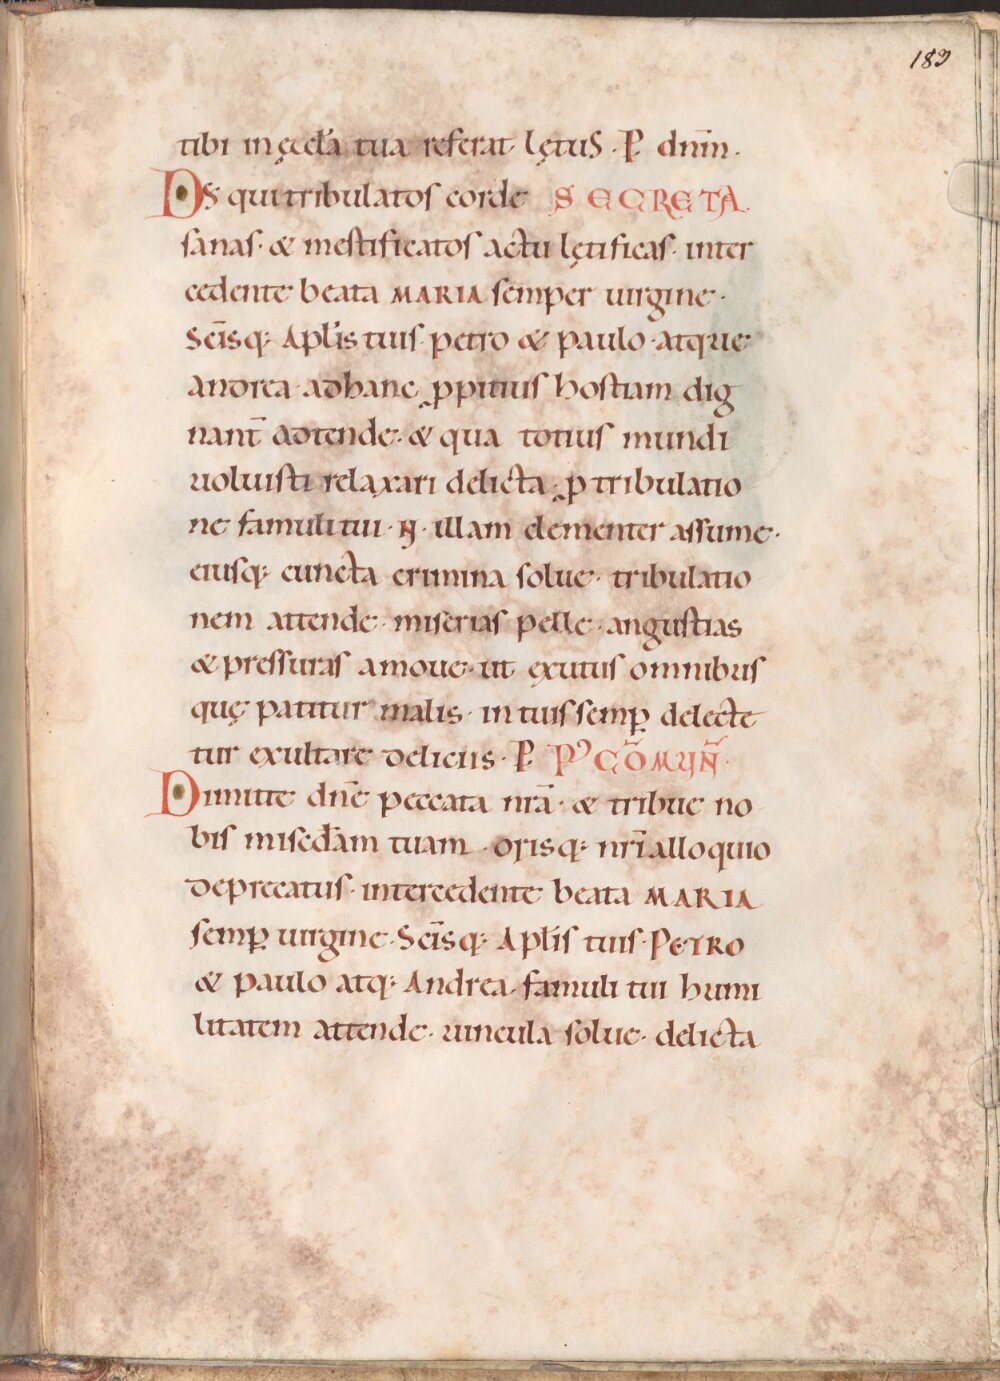 183
tibi in ęccła tua referat lętus · P dnm̄ ·
DS qui tribulatos corde SECRETA
sanas · & mestificatos actu lętificas · inter
cedente beata MARIA semper uirgine ·
Sc̄isq; Apłis tuis petro & paulo atque
andrea · ad hanc ꝓpitius hostiam dig
nant̄ adtende · & qua totius mundi
uoluisti relaxari delicta · ꝓ tribulatio
ne famuli tui · N · illam clementer assume ·
eiusq; cuncta crimina solue · tribulatio
nem attende · miserias pelle · angustias
& pressuras amoue · ut exutus omnibus
quę patitur malis · in tuis semꝑ delecte
tur exultare deliciis · P · P' CŌMUN̄
Dimitte dn̄e peccata nr̄a · & tribue no
bis misćdam tuam · orisq; nr̄i alloquio
deprecatus · intercedente beata MARIA
semꝑ uirgine · Sc̄isq; Apłis tuis · PETRO
& paulo atq; Andrea · famuli tui humi
litatem attende · uincula solue · delicta